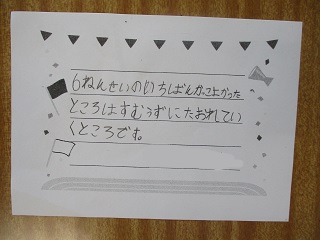 6ねんせいのいちばんかっこよかった
ところはすむうずにたおれてい
くところです。